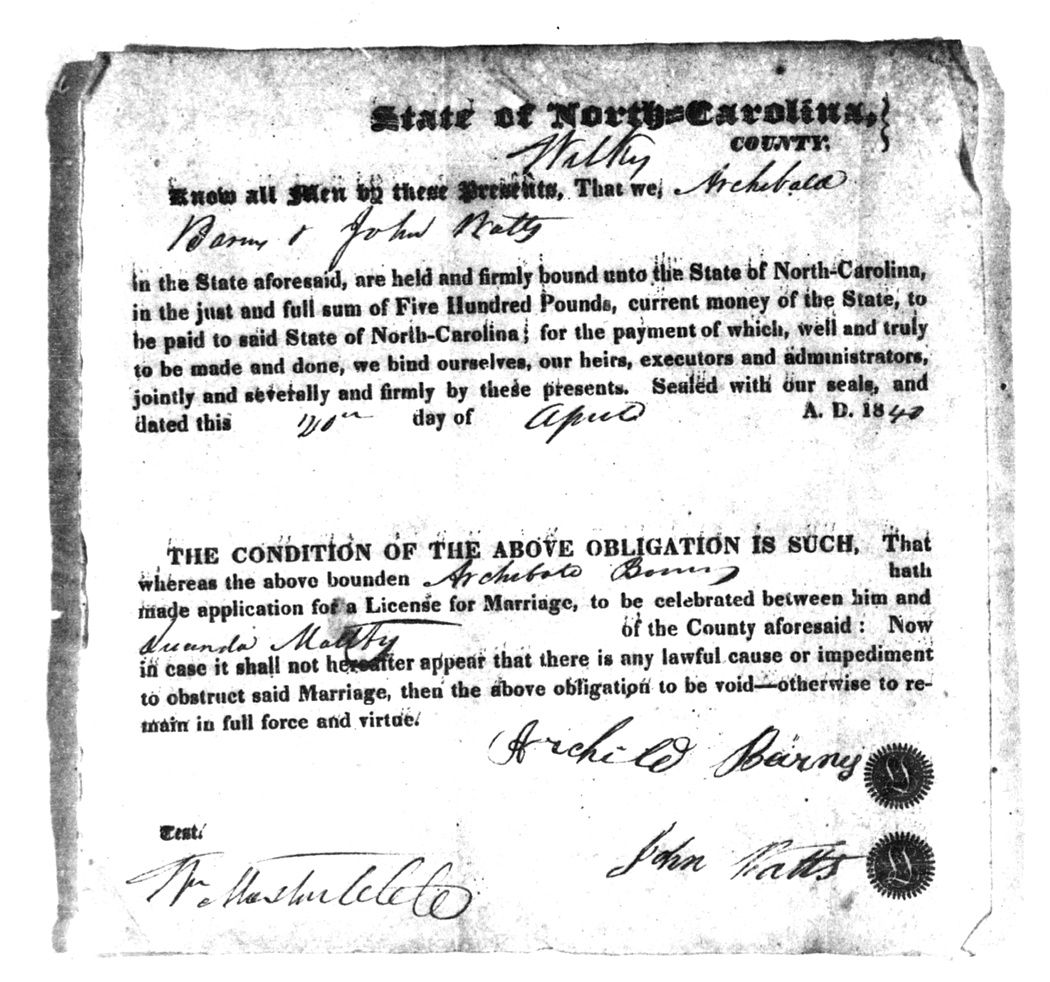 State of North-Carolina,
Wilkes COUNTY.
Know all Men by these Presents, That we, Archibald
Barns & John Watts
in the State aforesaid, are held and firmly bound unto the State of North-Carolina,
in the just and full sum of Five Hundred Pounds, current money of the State, to
be paid to said State of North-Carolina; for the payment of which, well and truly
to be made and done, we bind ourselves, our heirs, executors and administrators,
jointly and severally and firmly by these presents. Sealed with our seals, and
dated this day of April A. D. 1840
THE CONDITION OF THE ABOVE OBLIGATION IS SUCH, That
whereas the above bounden Archibald hath
made application for a License for Marriage, to be celebrated between him and
of the County aforesaid: Now
in case it shall not hereafter appear that there is any lawful cause or impediment
to obstruct said Marriage, then the above obligation to be void—otherwise to re-
main in full force and virtue.
Archibld Barns
Test.
John Watts